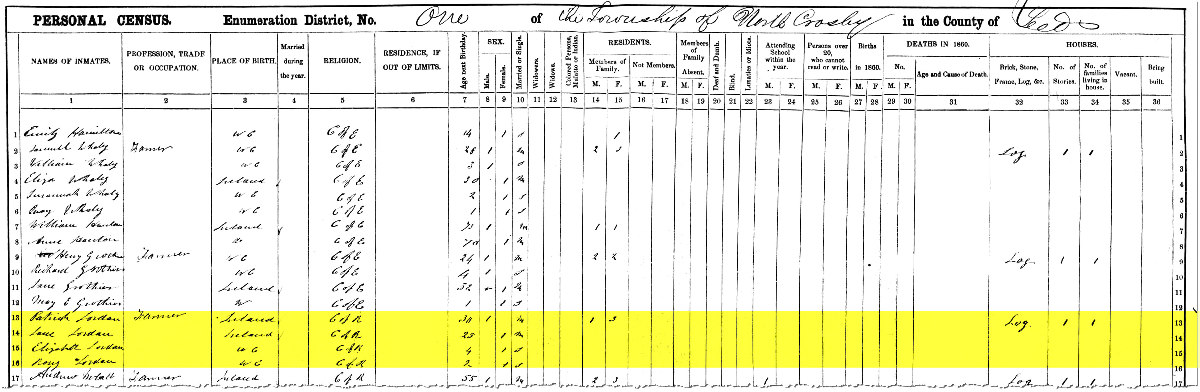 PERSONAL CENSUS. Enumeration District, No. One of the Township of North Crosby in the County of Leeds
NAMES OF INMATES. PROFESSION, TRADE OR OCCUPATION. PLACE OF BIRTH. Married during the year. RELIGION. RESIDENCE, IF OUT OF LIMITS. Age next Birthday. SEX. Male. Female. Married or Single. Widowers. Widows. Colored Persons, Mulatto or Indian. RESIDENTS. Members of Family. M. F. Not Members. M. F. Members of Family Absent. M. F. Deaf and Dumb. Blind. Lunatics or Idiots. Attending School within the year. M. F. Persons over 20, who cannot read or write. M. F. Births in 1860. M. F. DEATHS IN 1860. No. M. F. Age and Cause of Death. HOUSES. Brick, Stone, Frame, Log, &c. No. of Stories. No. of families living in house. Vacant. Being built.
1 2 3 4 5 6 7 8 9 10 11 12 13 14 15 16 17 18 19 20 21 22 23 24 25 26 27 28 29 30 31 32 33 34 35 36
1 Emily Hamilton W C C of E 14 1 s 1 1
2 Samuel Whaly Farmer W C C of E 28 1 m 2 3 Log 1 1 2
3 William Whaly W C C of E 3 1 s 3
4 Eliza Whaly Ireland C of E 30 1 m 4
5 Susannah Whaly W C C of E 2 1 s 5
6 Whaly W C C of E 1 1 s 6
7 William Ireland C of E 1 m 1 1 7
8 Anne C of E 70 1 m 8
9 Henry Farmer W C C of E 24 1 m 2 2 Log 1 1 9
10 Richard Grothier W C C of E 4 1 s 10
11 Jane Grothier Ireland C of E 32 1 m 11
12 May E Grothier C of E 1 1 s 12
13 Patrick Jordan Farmer Ireland C of R 30 1 m 1 3 Log 1 1 13
14 Jane Jordan Ireland C of R 25 1 m 14
15 Elizabeth Jordan W C C of R 4 1 s 15
16 Jordan W C C of R 2 1 s 16
17 Andrew Farmer Ireland C of R 55 1 m 2 3 1 Log 1 1